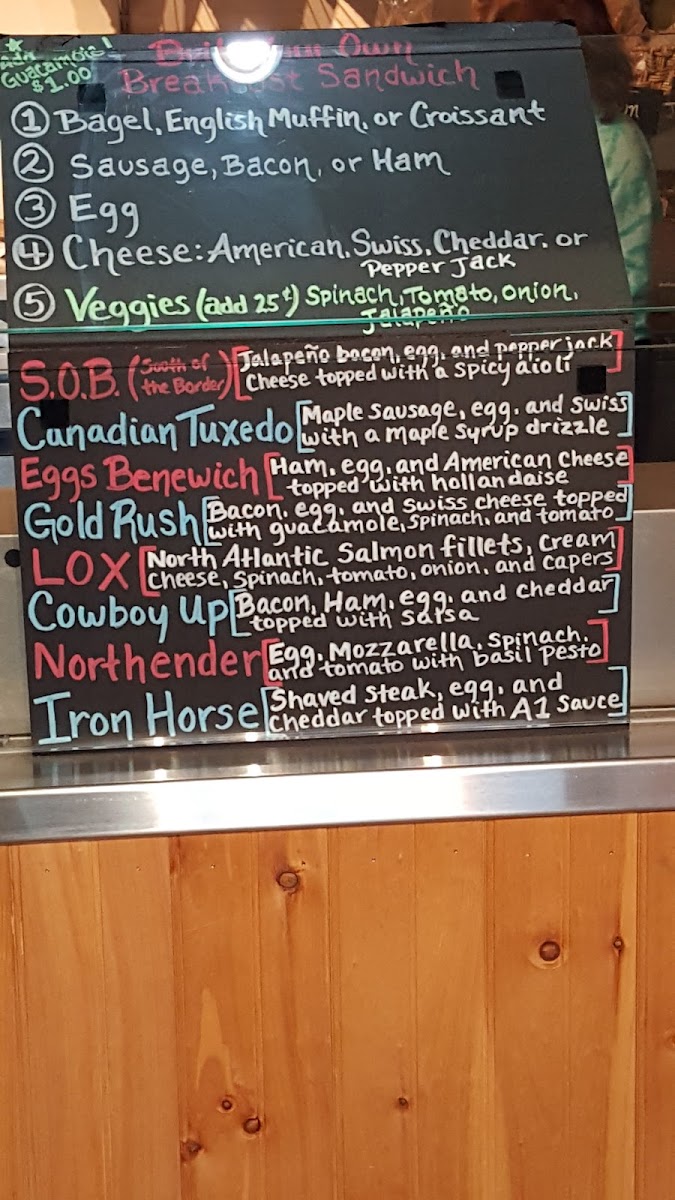 Add
Guacamole!
$1.00
Build Your Own
Breakfast Sandwich
1 Bagel, English Muffin, or Croissant
2 Sausage, Bacon, or Ham
3 Egg
4 Cheese: American, Swiss, Cheddar, or
Pepper Jack
5 Veggies (add 25¢) Spinach, Tomato, Onion,
Jalapeño
S.O.B. (South of the Border) [Jalapeño bacon, egg, and pepper jack
cheese topped with a spicy aioli]
Canadian Tuxedo [Maple sausage, egg, and Swiss
with a maple syrup drizzle]
Eggs Benewich [Ham, egg, and American cheese
topped with hollandaise]
Gold Rush [Bacon, egg, and Swiss cheese topped
with guacamole, spinach, and tomato]
LOX [North Atlantic Salmon fillets, cream
cheese, spinach, tomato, onion, and capers]
Cowboy Up [Bacon, Ham, egg, and cheddar
topped with salsa]
Northender [Egg, Mozzarella, spinach,
and tomato with basil pesto]
Iron Horse [Shaved steak, egg, and
cheddar topped with A1 Sauce]